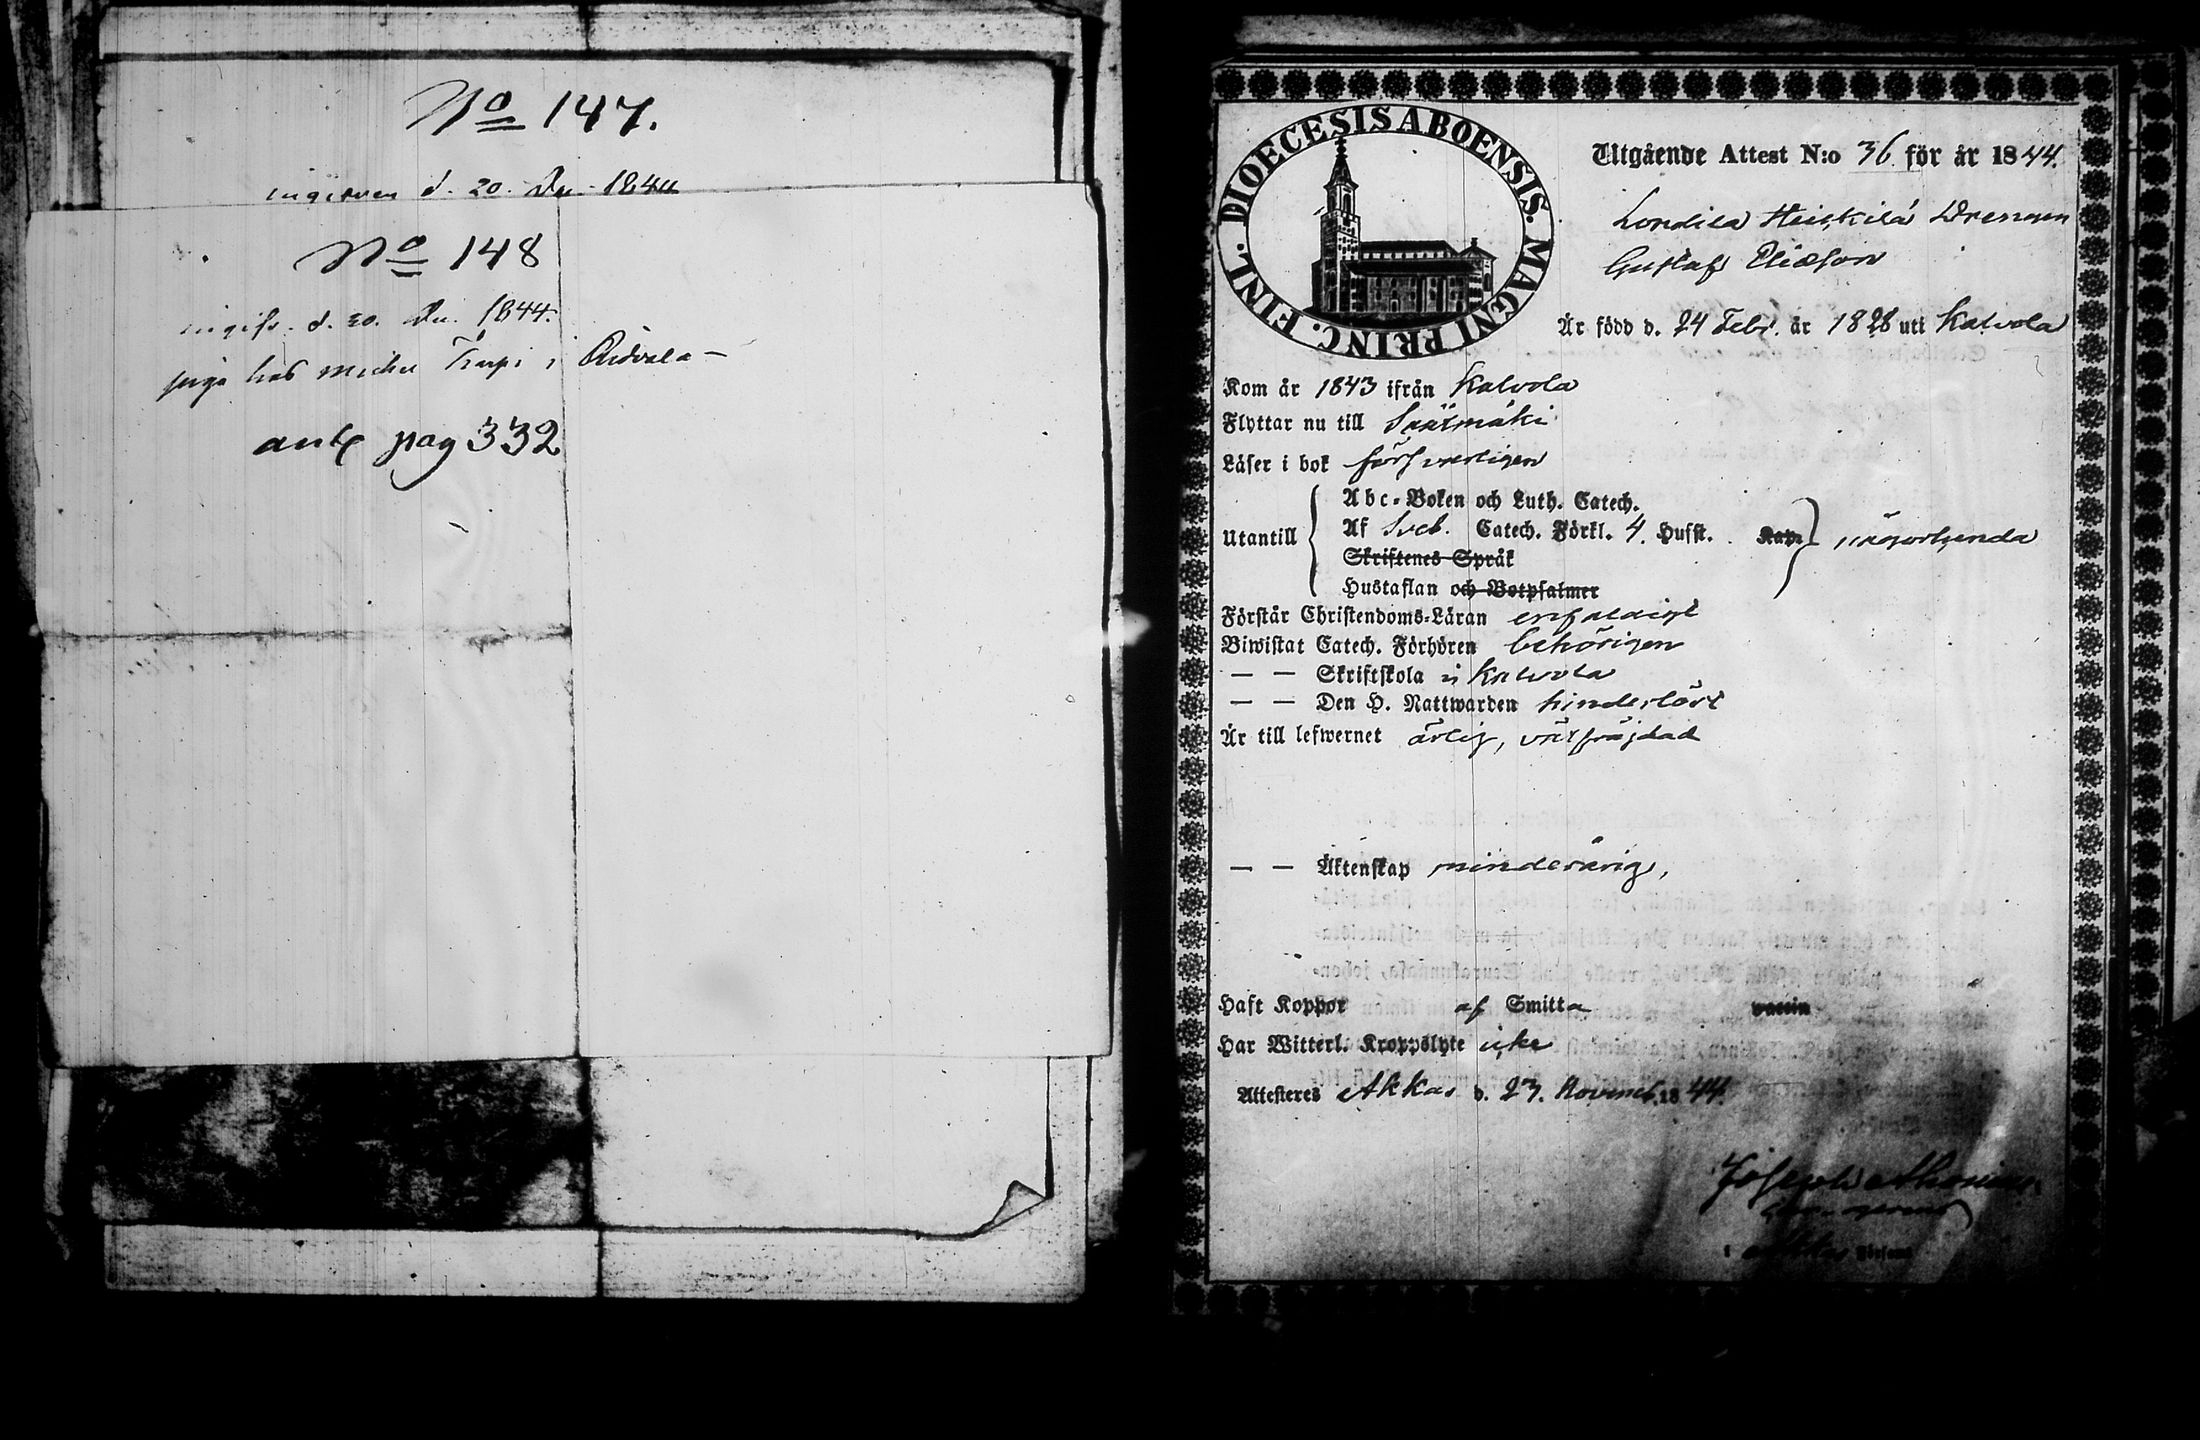 No 147.
ingifven d. 20. 1844
No 148
ingifv. d. 20. 1844.
piga hos i Ridvala —
ant pag 332
DIOECESIS ABOENSIS. MAGNI PRINC. FINL.
Utgående Attest N:o 36. för år 1844.
Heickilä Drengen
Gustaf Eliæson
Är född d. 24 Febr. år 1828 uti Kalvola
Kom år 1843 ifrån Kalvola
Flyttar nu till Sääxmäki
Läser i bok försvarligen
Utantill
Abc-Boken och Luth. Catech.
Af Sveb. Catech. Förkl. 4. Hufst. Kap.
Skriftenes Språk
Hustaflan och Botpsalmer
någorlunda
Förstår Christendoms-Läran enfaldigt
Biwistat Catech. Förhören behörigen
— — Skriftskola i Kalvola
— — Den H. Nattwarden hinderlöst
Är till lefwernet ärlig, välfräjdad
— — Äktenskap minderårig,
Haft Koppor af Smitta vaccin
Har Witterl. Kroppslyte icke
Attesteres Akkas d. 23. Novemb. 1844.
Joseph
i Akkas Församl